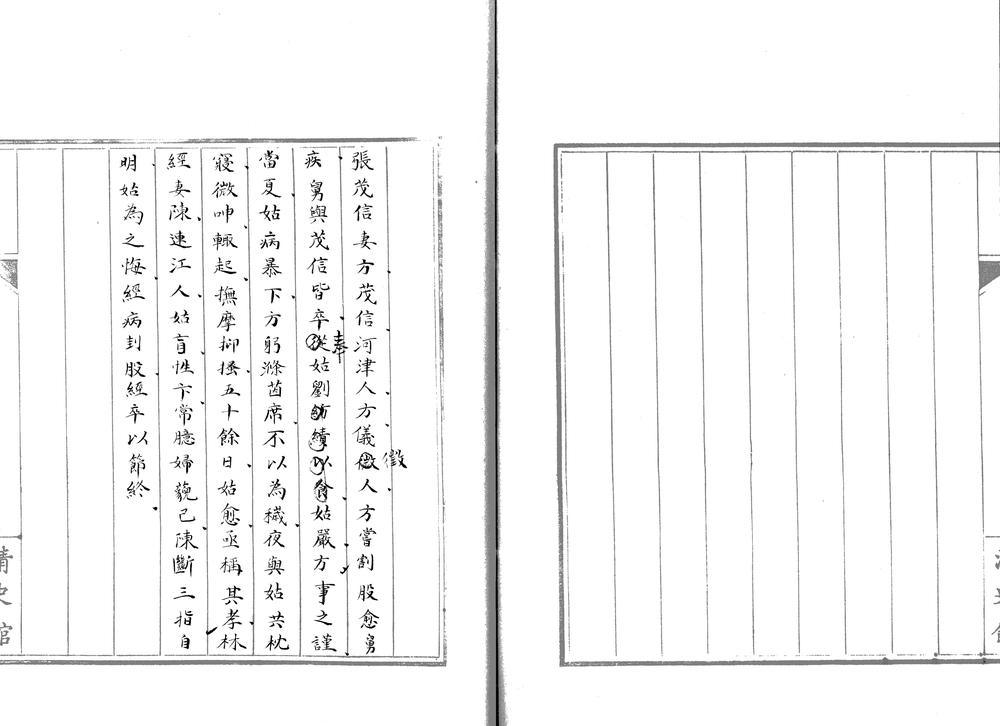 張茂信妻方茂信河津人方儀徵人方嘗割股愈舅
徵
疾舅與茂信皆卒從姑劉紡績以食姑嚴方事之謹
奉
當夏姑病暴下方躬滌茵席不以為穢夜與姑共枕
寢微呻輒起撫摩抑搔五十餘日姑愈亟稱其孝林
經妻陳連江人姑盲性卞常臆婦藐己陳斷三指自
明姑為之悔經病刲股經卒以節終
清史館